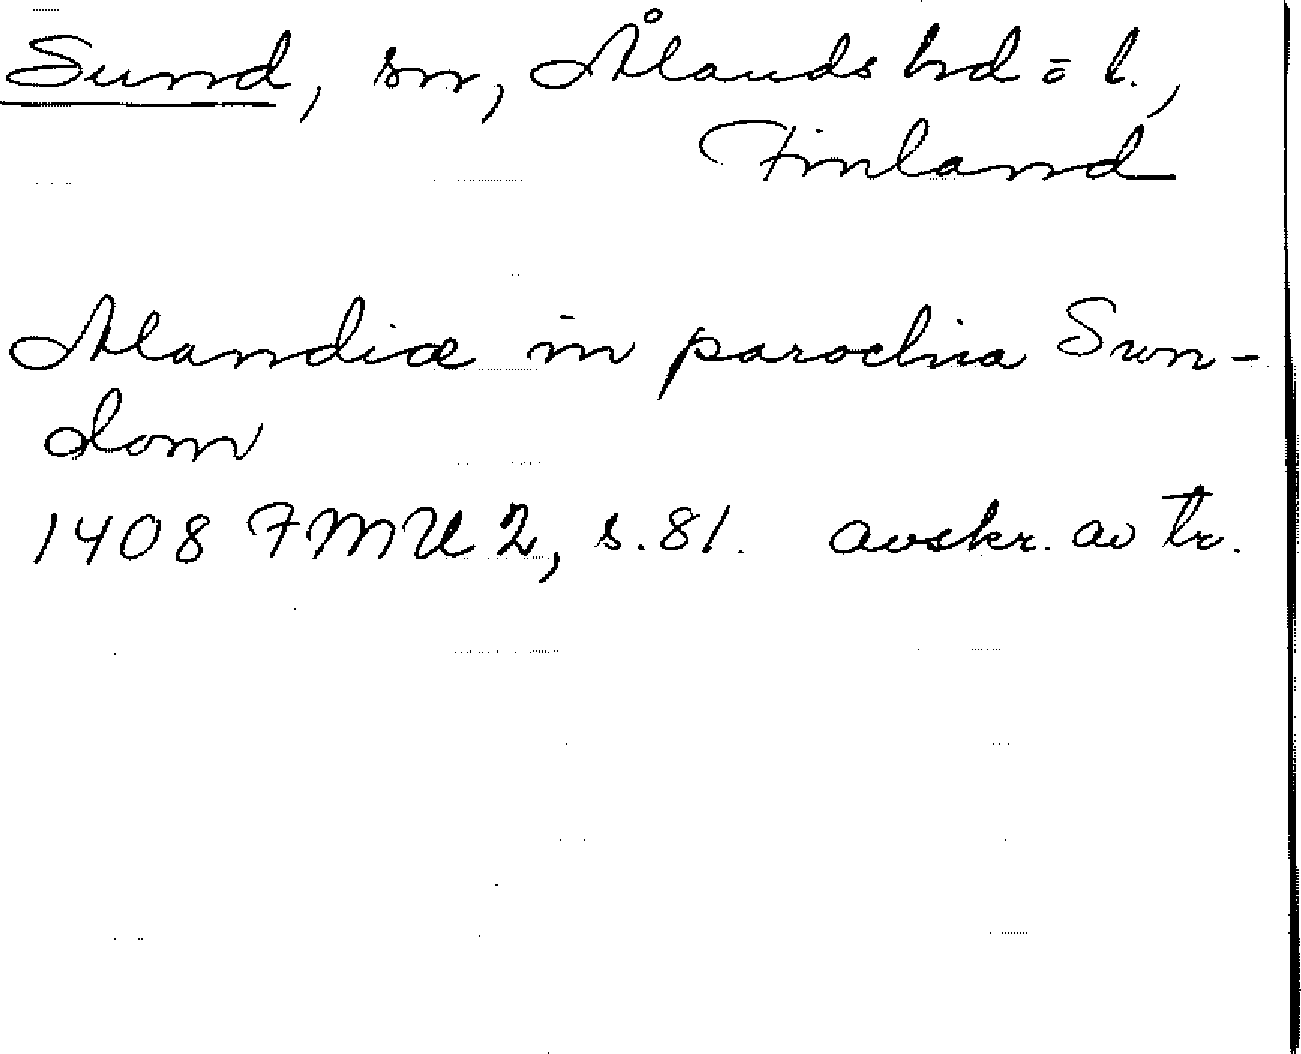 Sund, sn, Ålands hd = l.,
Finland
Alandiæ in parochia Sun-
dom
1408 FMU 2, s. 81. avskr. av tr.